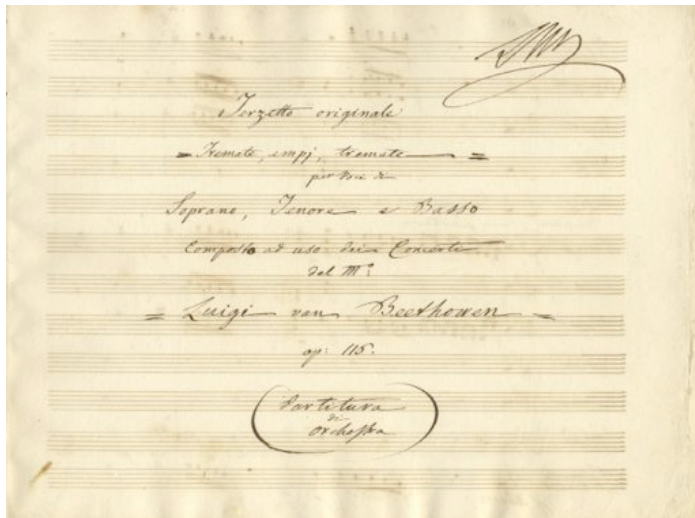 Terzetto originale
= Tremate, empj, tremate =
per voci di
Soprano, Tenore e Basso
Composto ad uso dei Concerti
del Mo:
= Luigi van Beethowen =
op: 115.
Partitura
di
orchestra